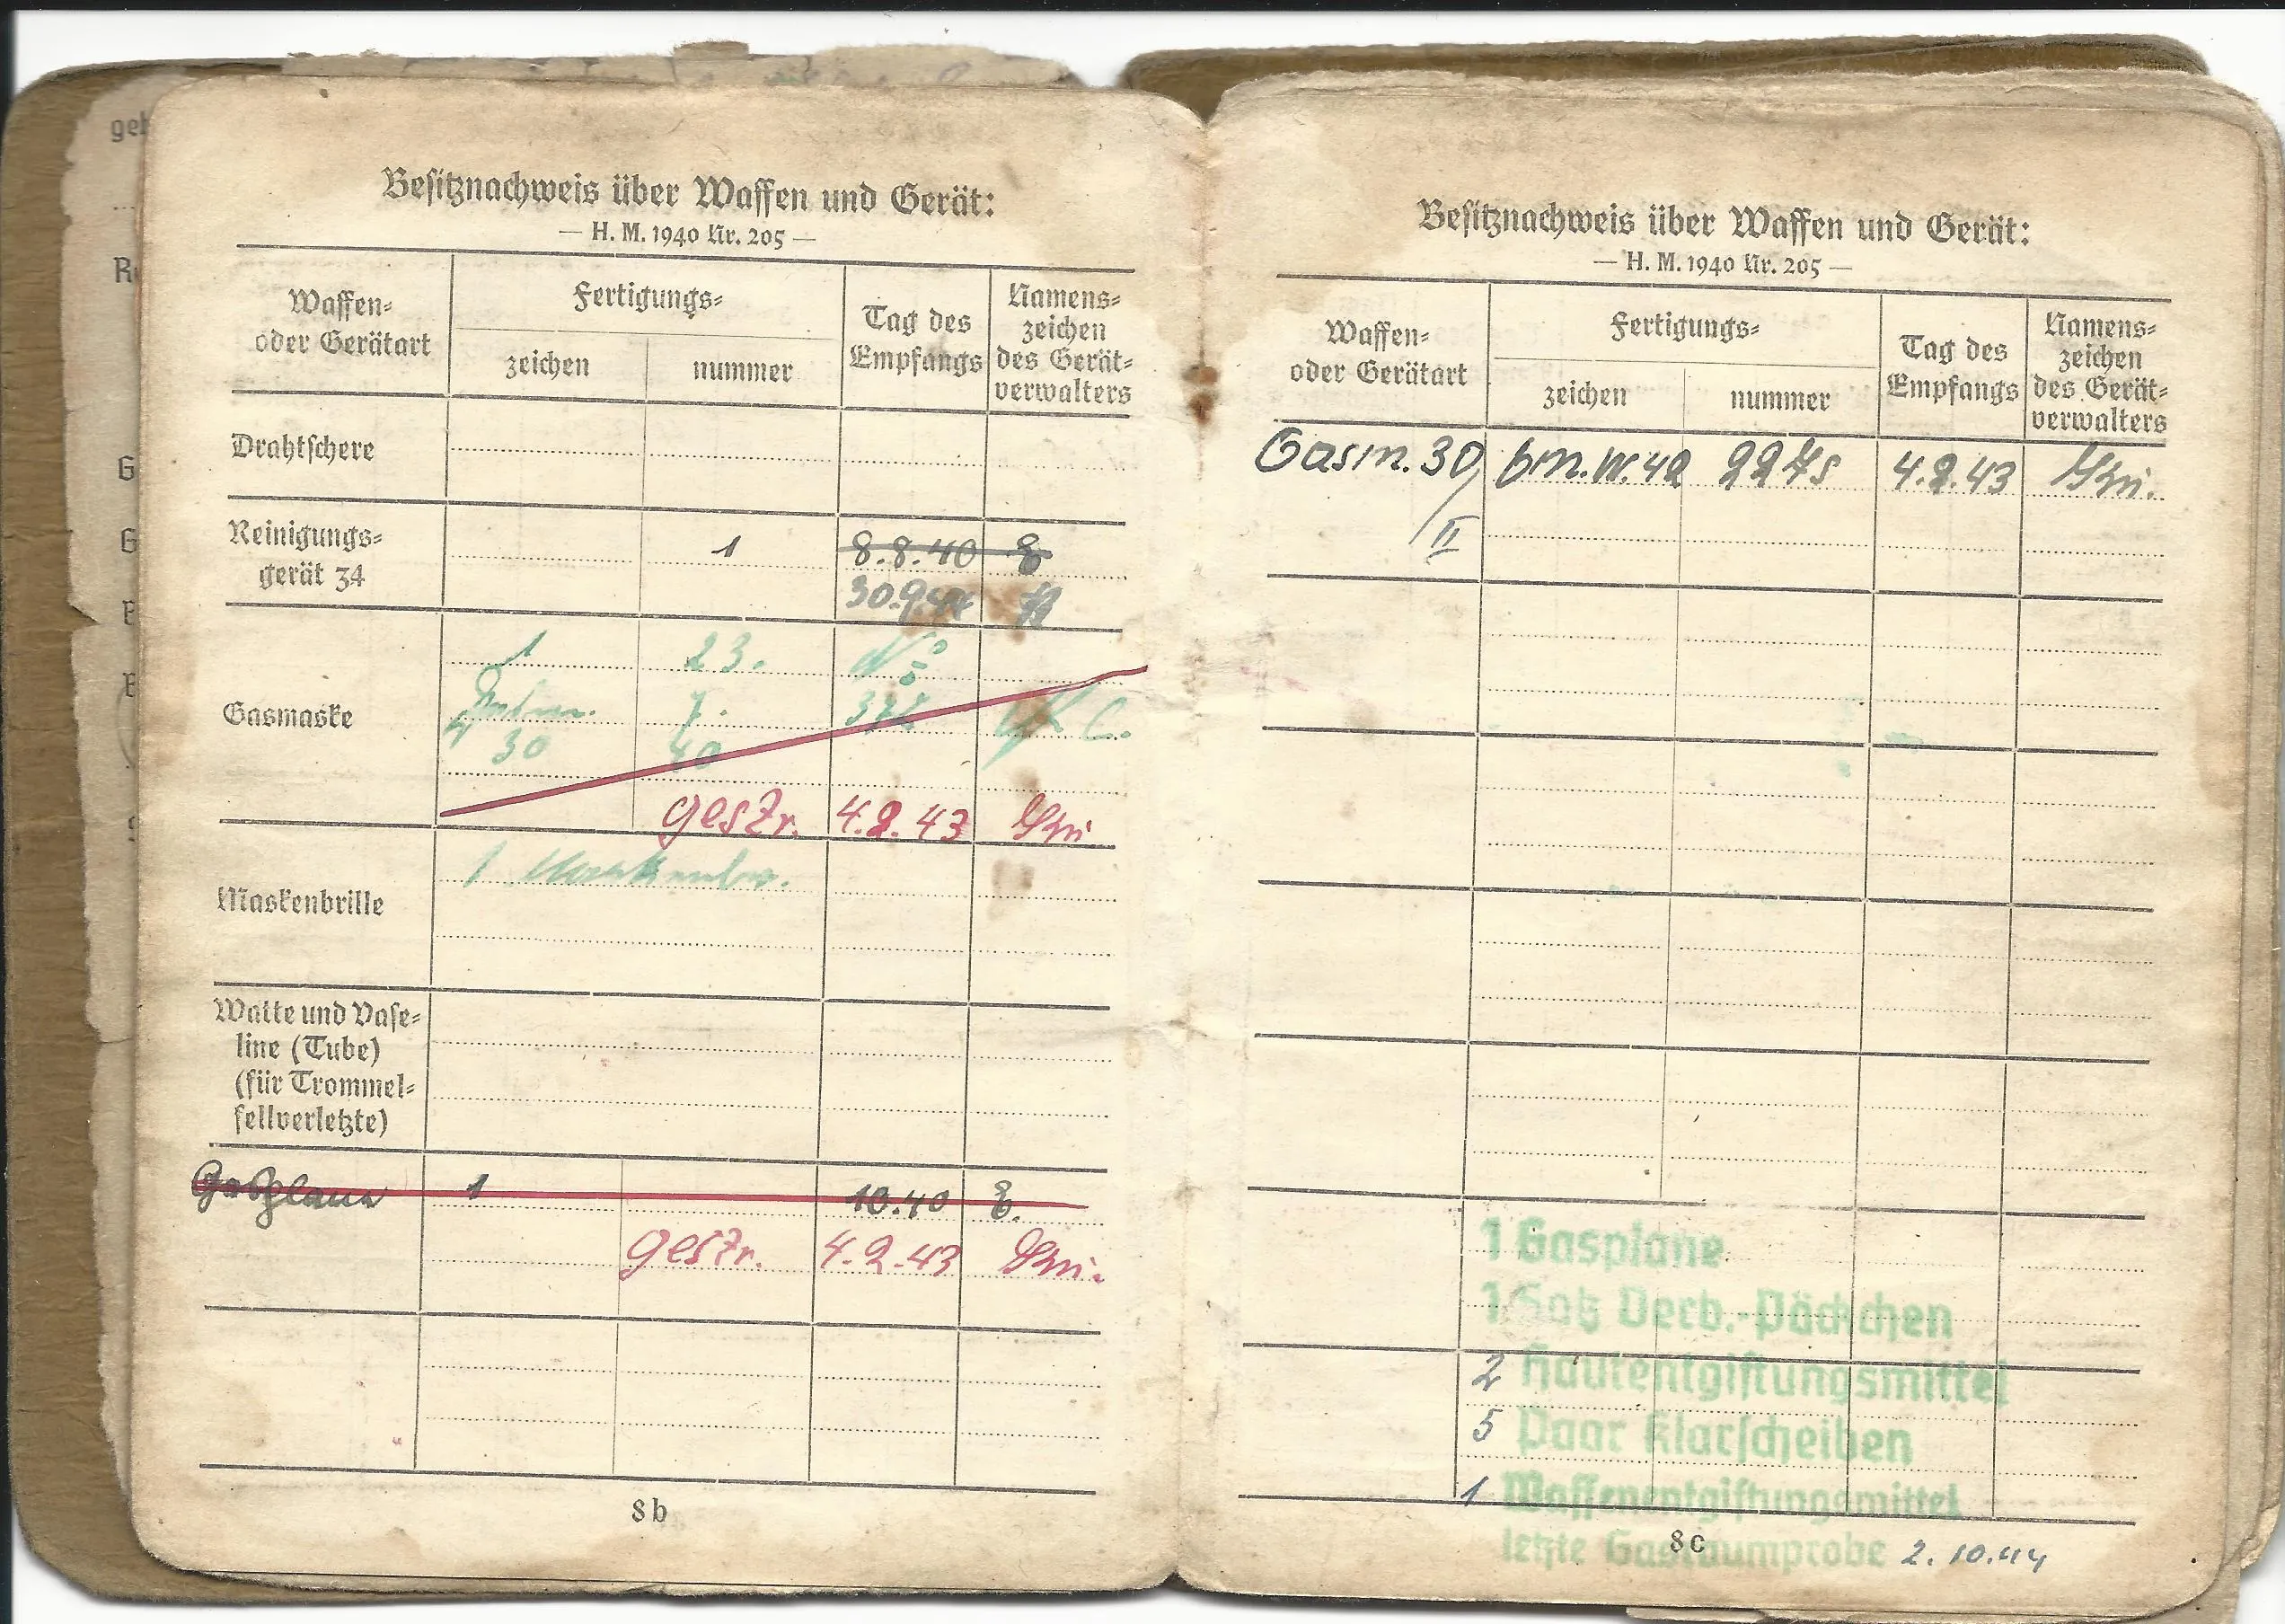 Besitznachweis über Waffen und Gerät:
— H. M. 1940 Nr. 205 —
Waffen-
oder Gerätart
Fertigungs-
zeichen
nummer
Tag des
Empfangs
Namens-
zeichen
des Gerät-
verwalters
Drahtschere
Reinigungs-
gerät 34
1
8.8.40
30.9.44
Gasmaske
1 23.
7. 37
30 40
gestr. 4.2.43
Maskenbrille
1
Watte und Vase-
line (Tube)
(für Trommel-
fellverletzte)
Gasplane 1 10.40
gestr. 4.2.43
8b
Besitznachweis über Waffen und Gerät:
— H. M. 1940 Nr. 205 —
Waffen-
oder Gerätart
Fertigungs-
zeichen
nummer
Tag des
Empfangs
Namens-
zeichen
des Gerät-
verwalters
Gasm. 30/ bm.W.42 2275 4.2.43
II
1 Gasplane
1 Satz Verb.-Päckchen
2 Hautentgiftungsmittel
5 Paar Klarscheiben
1 Waffenentgiftungsmittel
8c
letzte Gasraumprobe 2.10.44
geh